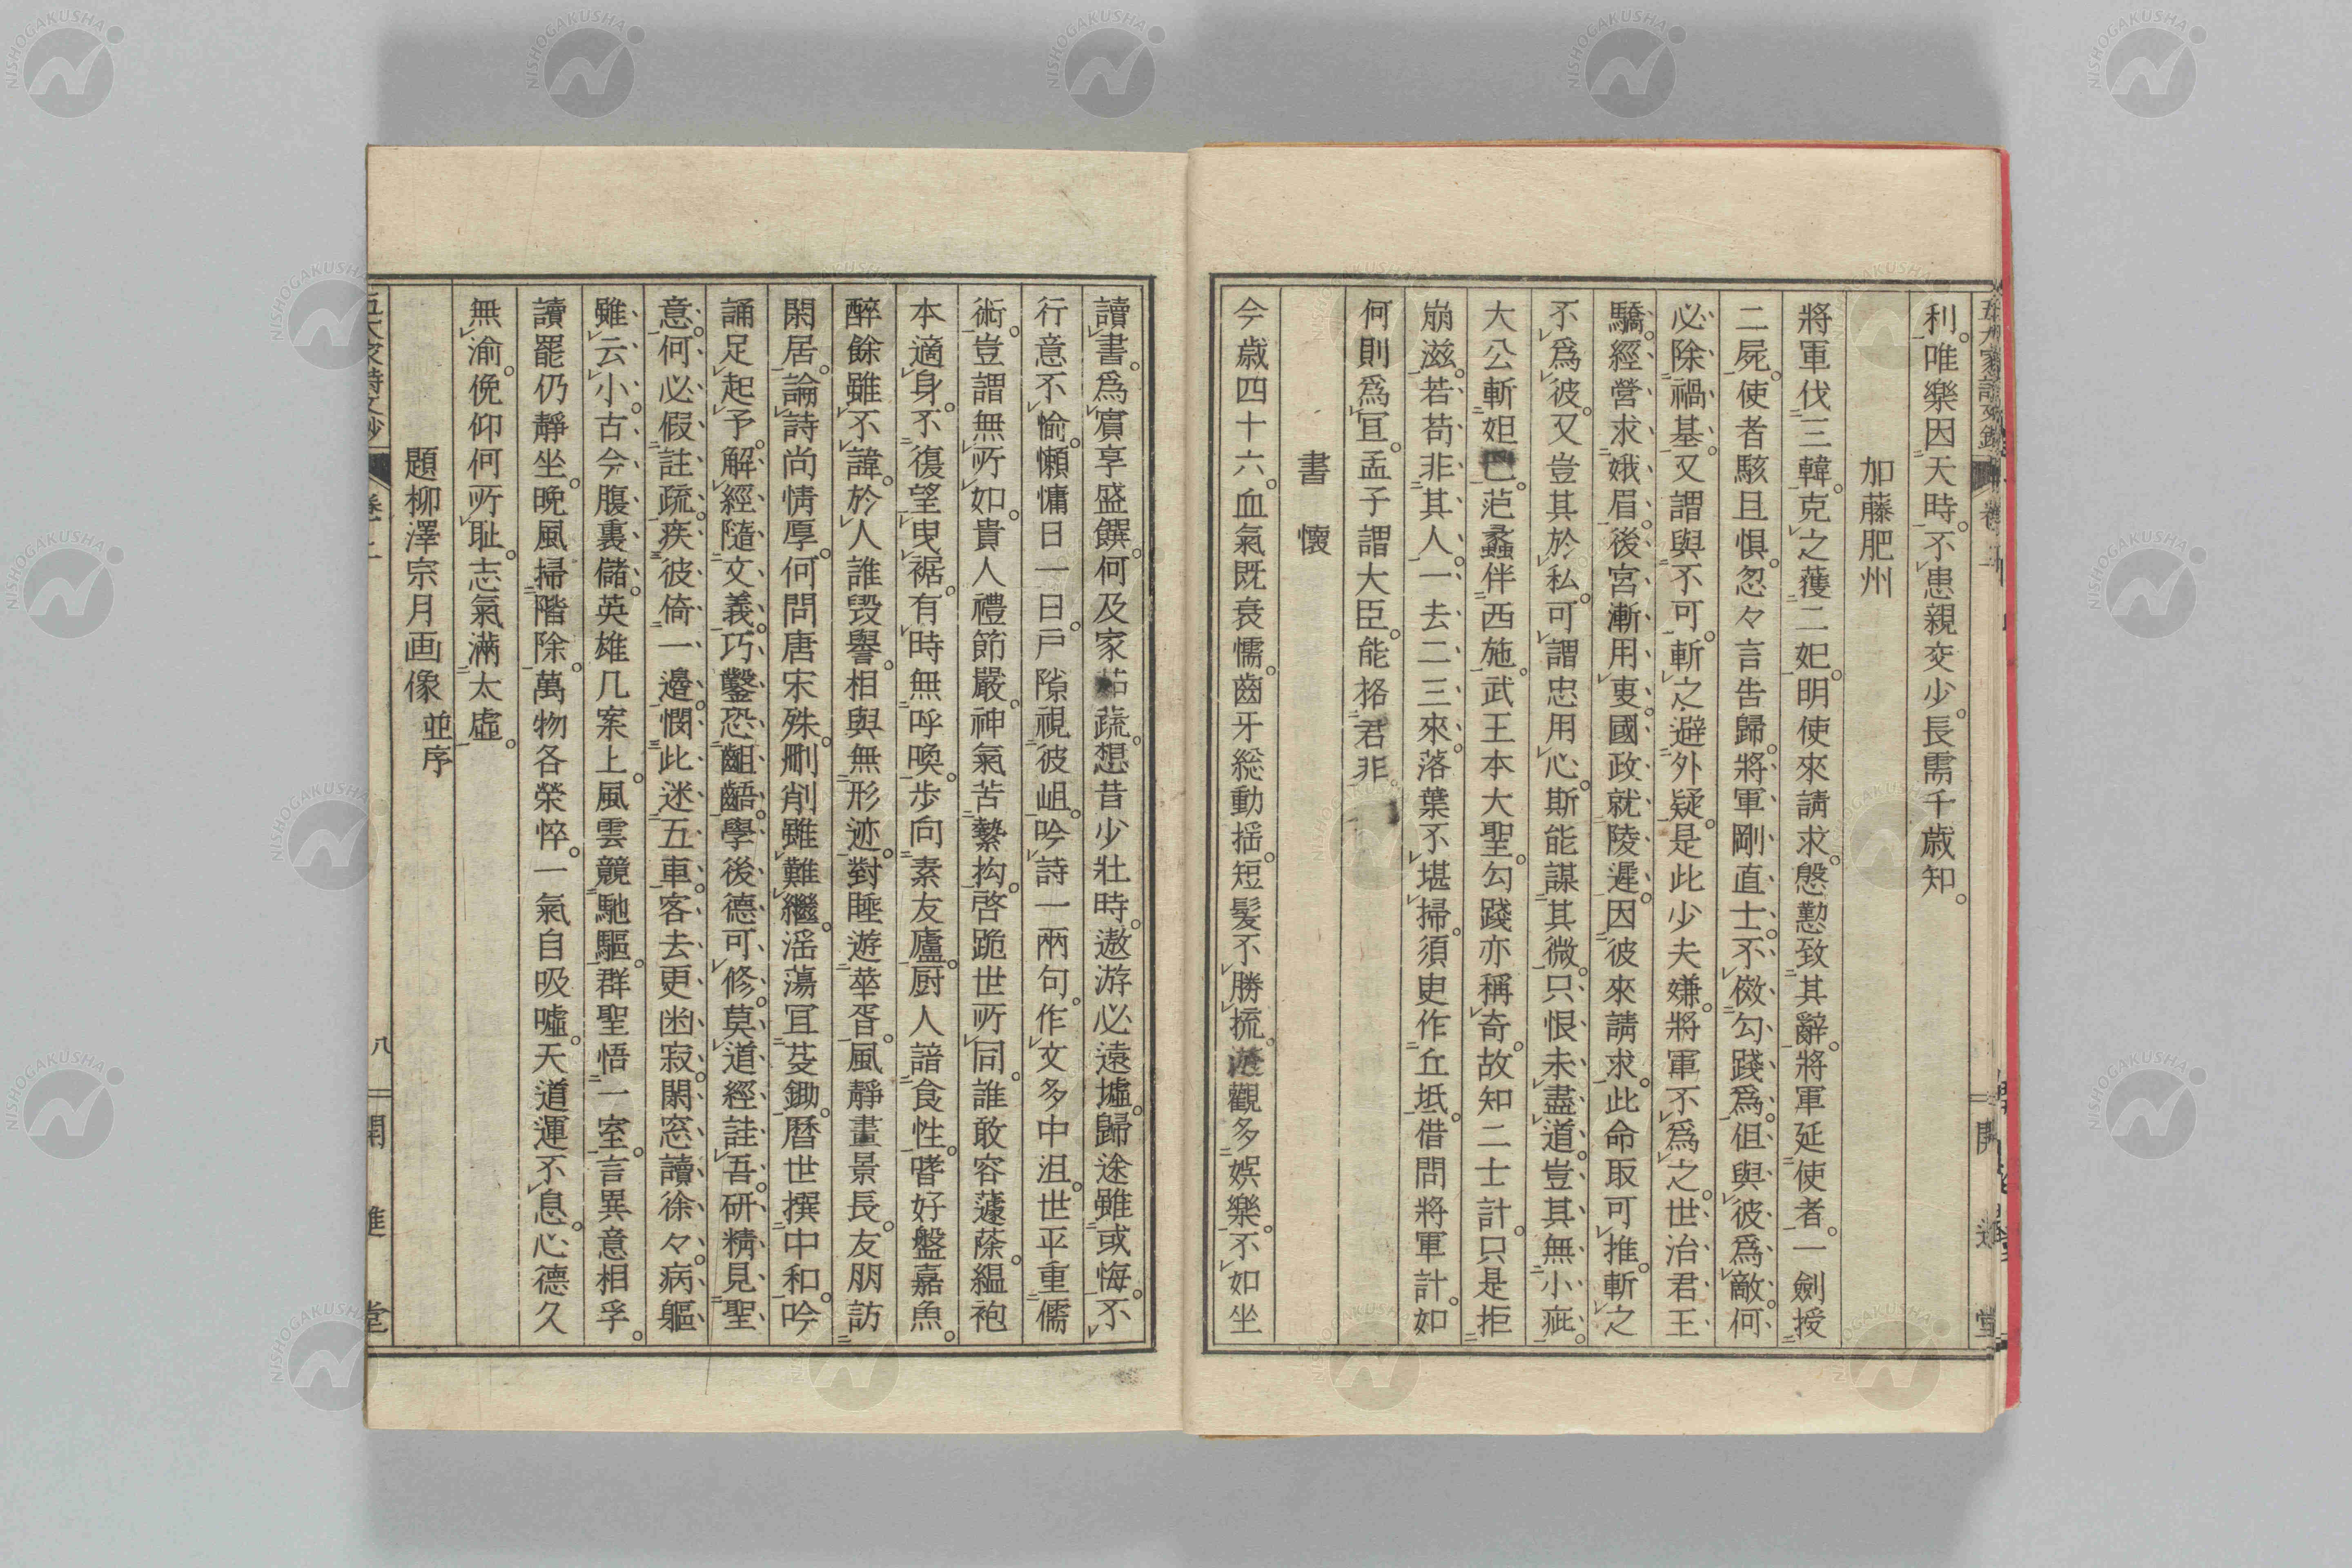 利。唯樂因天時。不患親交少。長需千歳知。
加藤肥州
將軍伐三韓。克之獲二妃。明使來請求。慇懃致其辭。將軍延使者。一劍授
二屍。使者駭且惧。忽々言告歸。將軍剛直士。不傚勾踐爲。但與彼爲敵。何
必除禍基。又謂與不可。斬之避外疑。是此少夫嫌。將軍不爲之。世治君王
驕。經營求娥眉。後宮漸用叓。國政就陵遲。因彼來請求。此命取可推。斬之
不爲彼。又豈其於私。可謂忠用心。斯能謀其微。只恨未盡道。豈其無小疵。
大公斬妲己。范蠡伴西施。武王本大聖。勾踐亦稱奇。故知二士計。只是拒
崩滋。若苟非其人。一去二三來。落葉不堪掃。須臾作丘坻。借問將軍計。如
何則爲冝。孟子謂大臣。能格君非。
書懷
今歳四十六。血氣既衰懦。齒牙総動揺。短髪不勝梳。遊觀多娯樂。不如坐
讀書。爲賓享盛饌。何及家茹蔬。想昔少壯時。遨游必遠墟。歸途雖或悔。不
行意不愉。懶慵日一日。戸隙視彼岨。吟詩一兩句。作文多中沮。世平重儒
術。豈謂無所如。貴人禮節嚴。神氣苦縶拘。啓跪世所同。誰敢容蘧蒢。縕袍
本適身。不復望曳裾。有時無呼喚。歩向素友廬。厨人諳食性。嗜好盤嘉魚。
醉餘雖不諱。於人誰毀譽。相與無形迹。對睡遊華胥。風靜晝景長。友朋訪
閑居。論詩尚情厚。何問唐宋殊。刪削雖難繼。滛蕩冝芟鋤。暦世撰中和。吟
誦足起予。解經隨文義。巧鑿恐齟齬。學後德可修。莫道經註吾。研精見聖
意。何必假註疏。疾彼倚一邊。憫此迷五車。客去更幽寂。閑窓讀徐々。病軀
雖云小。古今腹裏儲。英雄几案上。風雲競馳驅。群聖悟一室。言異意相孚。
讀罷仍靜坐。晩風掃階除。萬物各榮悴。一氣自吸噓。天道運不息。心德久
無渝。俛仰何所耻。志氣滿太虛。
題柳澤宗月画像 並序
八